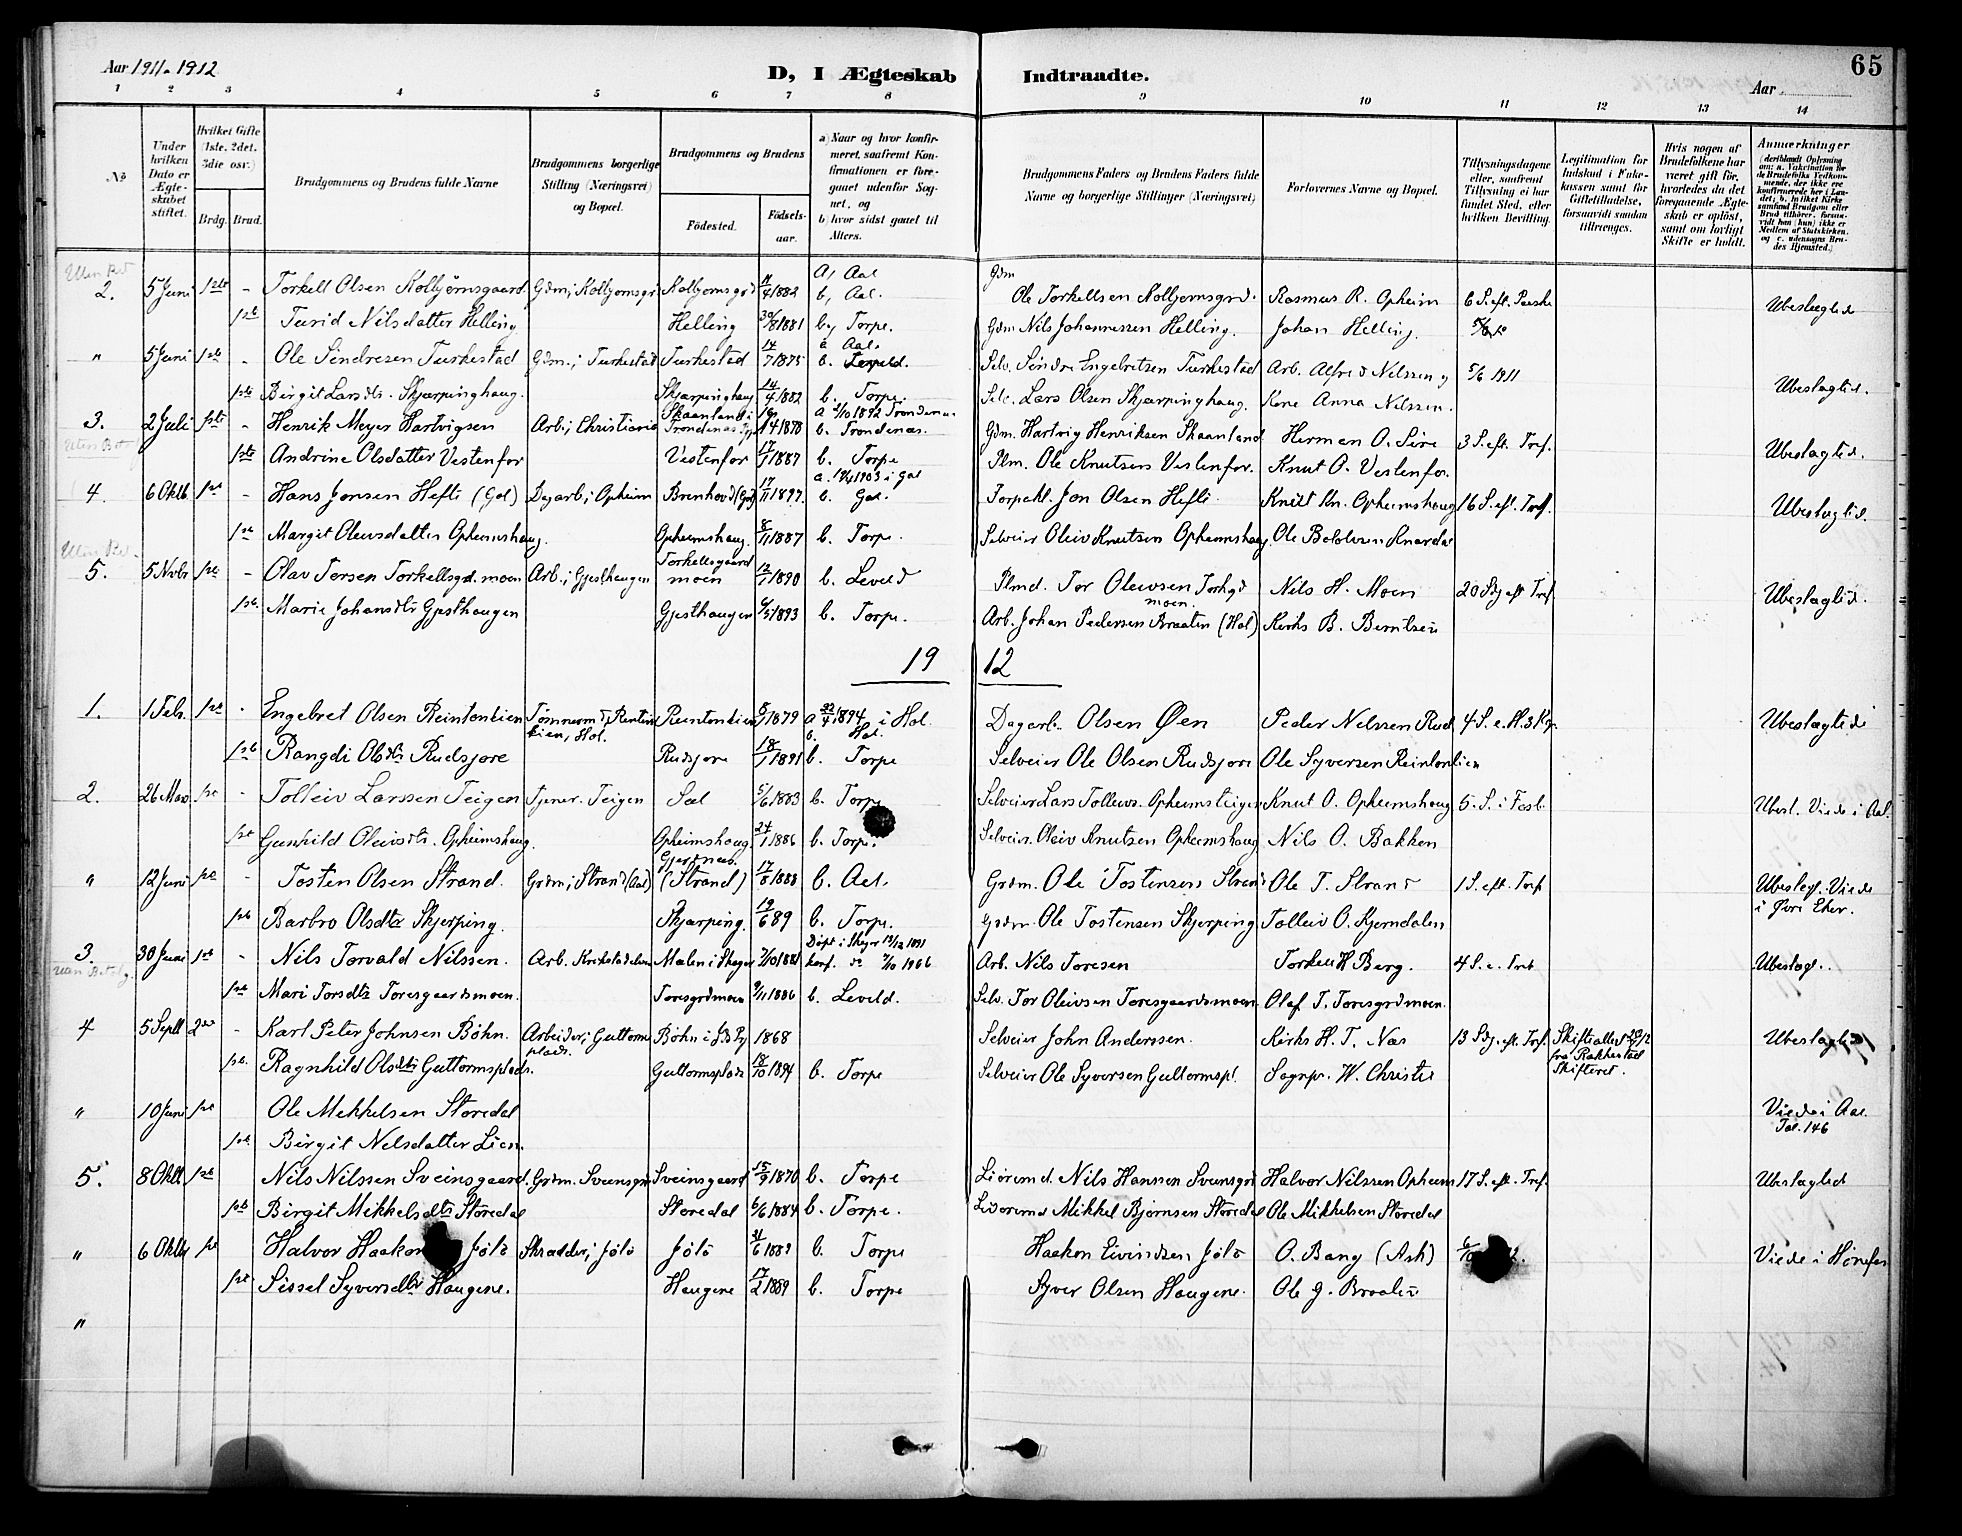 65
Aar 1911-1912
D, I Ægteskab Indtraadte.
Aar
1 2 3 4 5 6 7 8 9 10 11 12 13 14
No
Under hvilken Dato er Ægteskabet stiftet.
Hvilket Gifte (1ste, 2det, 3die osv.)
Brdg. Brud.
Brudgommens og Brudens fulde Navne
Brudgommens borgerlige Stilling (Næringsvei) og Bopæl.
Brudgommens og Brudens
Fødested.
Fødselsaar.
a) Naar og hvor konfirmeret, saafremt Konfirmationen er foregaaet udenfor Sognet, og
b) hvor sidst gaaet til Alters.
Brudgommens Faders og Brudens Faders fulde Navne og borgerlige Stillinger (Næringsvei)
Forlovernes Navne og Bopæl.
Tillysningsdagene eller, saafremt Tillysning ei har fundet Sted, efter hvilken Bevilling.
Legitimation for Indskud i Enkekassen samt for Giftetilladelse, forsaavidt saadan tiltrænges.
Hvis nogen af Brudefolkene har været gift før, hvorledes da det foregaaende Ægteskab er opløst, samt om lovligt Skifte er holdt.
Anmerkninger
2. 5 Juni 1ste - Torkell Olsen Kolbjørnsgaard Gdm. i Kolbjørnsgrd Kolbjørnsgrd 1882 a, Aal b, Aal. Gdm Ole Torkellsen Kolbjørnsgrd. Rasmus R. Opheim 6 S. eft. Paaske Ubeslægtede
1ste Turid Nilsdatter Helling Helling 30/8 1881 b, Torpe. Gdm Nils Johannessen Helling. Johan Helling.
" 5 Juni 1ste - Ole Sindresen Turkestad Gdm. i Turkestad Turkestad 14/7 1875 a Aal. b. Leveld. Selv. Sindre Engebretsen Turkestad Arb. Alfred Nilssen og 5/6 1911 Ubeslægted.
1ste Birgit Larsdtr. Skjærpinghaug. Skjærpinghaug 14/4 1882 b. Torpe. Selv. Lars Olsen Skjærpinghaug. Kone Anna Nilssen.
3. 2 Juli 1ste - Henrik Meyer Hartvigsen Arb. i Christiania Skaanland i Trondenæs 1878 a 2/10 1892 Trondenæs b. Trondenæs. Gdm. Hartvig Henriksen Skaanland Herman O. Sire 3 S. eft. Tref. Ubeslægted.
1ste Andrine Olsdatter Vestenfor Vestenfor 17/1 1887 b. Torpe Plm. Ole Knutsen Vestenfor. Knut O. Vestenfor.
4. 6 Oktb 1ste - Hans Jonsen Hefte (Gol) Dagarb. i Opheim Brenhovd (Gol) a. 1903 i Gol b. Gol. Torpekl. Jon Olsen Hefte Knut Kn. Opheimshaug 16 S. eft. Tref. Ubeslægted.
1ste Margit Oleivsdatter Opheimshaug. Opheimshaug. 8/11 1887 b. Torpe. Selveier Oleiv Knutsen Opheimshaug. Ole
5. 5 Nvbr 1ste - Olav Torsen Torkellsgd. moen Arb. i Gjesthaugen Torkellsgaard moen 12/1 1890 b. Leveld Plmd. Tor Oleivsen Torkgd moen. Nils H. Moen 20 Sdg eft Tref Ubeslægted.
1ste Marie Johansdtr Gjesthaugen Gjesthaugen 1893 b. Torpe. Arb. Johan Pedersen Braaten (Hol) Kirks B. Berntsen
19 12
1. 1 Feb. 1ste - Engebret Olsen Reintonkien Tømmermd. Reintonkien, Hol. Reintonkien 1879 a 1894 i Hol. b. Hol. Dagarb. Olsen Øen Peder Nilssen Rud Ubeslægtede
1ste Rangdi Olsdtr Rudsjore Rudsjore 18/1 1891 b. Torpe Selveier Ole Olsen Rudsjore Ole Syversen Reintonkien
2. 26 Mar 1ste - Tolleiv Larssen Teigen Tjener. Teigen Sæl 5/6 1883 b. Torpe Selveier Lars Tolleivs. Opheimsteigen Knut O. Opheimshaug 5. S. i Fast. Ubesl. Viede i Aal.
1ste Gunhild Oleivsdtr. Opheimshaug. Opheimshaug. 24/1 1886 b. Torpe. Selveier. Oleiv Knutsen Opheimshaug Nils O. Bakken
" 12 Juni 1ste - Tosten Olsen Strand. Grdm. i Strand (Aal) Gjertnes. (Strand) 17/8 1888 b. Aal. Grdm. Ole Tostensen Strand Ole T. Strand 1 S. eft. Tref Ubeslegt. Viede
1ste Barbro Olsdtr Skjerping. Skjærping. 19/6 89 b. Torpe. Grdm. Ole Tostensen Skjerping Tolleiv O. Hjemdalen
3. 30 Juni 1ste - Nils Torvald Nilssen. Arb. Døpt i Skoger konf. do Arb. Nils Toresen Torkell H. Berg. 4 S. e. Tref Ubeslægt.
1ste Mari Torsdtr Toresgaardsmoen. Toresgrdmoen 9/11 1886 b. Leveld. Selv. Tor Oleivsen Toresgaardsmoen Olaf T. Toresgrdmoen.
4 5 Septb 2det - Karl Peter Johnsen Bøhn. Arbeider i Guttormsplads. Bøhn i 1868 Selveier John Anderssen. Kirks H. T. Næs 13 Sdg. eft. Tref. Skifteattest fra Rakkestad Skifteret. Ubeslægted
1ste Ragnhild Olsdtr Guttormsplads. Guttormsplads 18/10 1894 b. Torpe Selveier Ole Syversen Guttormspl. Sognpr. W. Christie
" 10 Juni 1ste Ole Mikkelsen Støredal Viede i Aal Tal. 146
1ste Birgit Nilsdatter Lien.
5. 8 Oktb 1ste Nils Nilssen Sveinsgaard. Grdm. Sveinsgrd Sveinsgaard 15/9 1870 b. Torpe Nils Hanssen Sveinsgrd Halvor Nilssen Opheim 17 S. eft. Tref. Ubeslægted
1ste Birgit Mikkelsdtr Støredal Støredal 6/6 1884 b. Torpe. Mikkel Bjørnsen Støredal Ole Mikkelsen Støredal
" 6 Oktb 1ste Halvor Haakon Jølo Skrædder i Jølo Jølo 1889 b. Torpe Haakon Eivindsen Jølo O. Bang (Ask) Viede i Hønefos
1ste Sissel Syversdtr Haugene. Haugene 17/2 1889 b. Torpe Syver Olsen Haugene. Ole G. Braaten
"